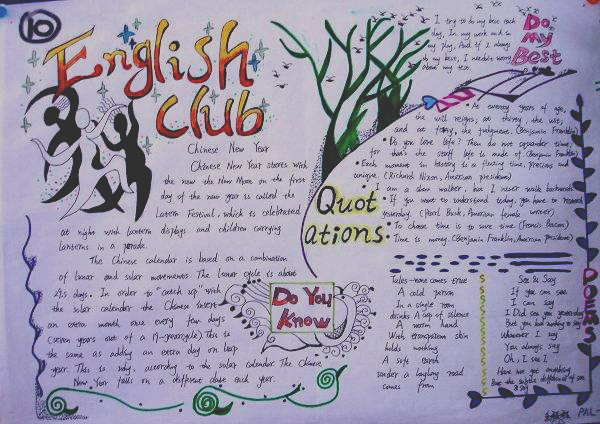 10
English
club
Chinese New Year
Chinese New Year starts with
the new the New Moon on the first
day of the new year is called the
Latern Festival, which is celebrated
at night with lantern displays and children carrying
lanterns in a parade.
The Chinese calendar is based on a combination
of lunar and solar movements. The lunar cycle is about
29.5 days. In order to "catch up" with
the solar calendar the Chinese insert
an extra month once every few days
(seven years out of a 19-yearcycle) This is
the same as adding an extra day on leap
year. This is why, according to the solar calendar. The Chinese
New Year falls on a different date each year.
Do You
Know
Do
My
Best
I try to do my best each
day, In my work and in
my play, And if I always
do my best, I needn't worry
about my test.
Quot
ations:
At twenty years of age,
the will reigns; at thirty, the wit;
and at forty, the judgment. (Benjamin Franklin)
Do you love life? Then do not squander time,
for that's the stuff life is made of. (Benjamin Franklin)
Each moment in history is a fleeting time, precious and
unique. (Richard Nixon, American president)
I am a slow walker, but I never walk backwards.
If you want to understand today, you have to research
yesterday. (Pearl Buck, American female writer)
To choose time is to save time (Francis Bacon)
Time is money. (Benjamin Franklin, American president)
POEMS
Tales-none comes true
A cold person
In a single room
drinks A cup of silence
A warm hand
With transparent skin
holds nothing
A soft
under a road
comes from
See & Say
If you can see
I can say
I Did see you yesterday
But you had nothing to say
Whenever I say
You always say
Oh, I see I
Have not got anything
But the subtle difference of see
& say
PAL-